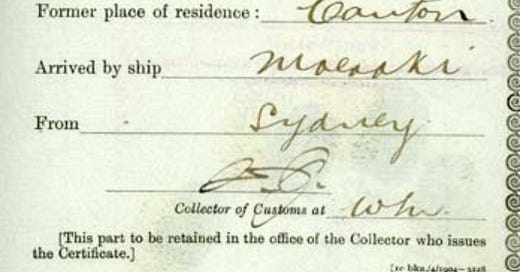 Former place of residence: Canton.
Arrived by ship Moeraki
From Sydney
Collector of Customs at Wn.
[This part to be retained in the office of the Collector who issues
the Certificate.]
[10 bks./4/1904—3228